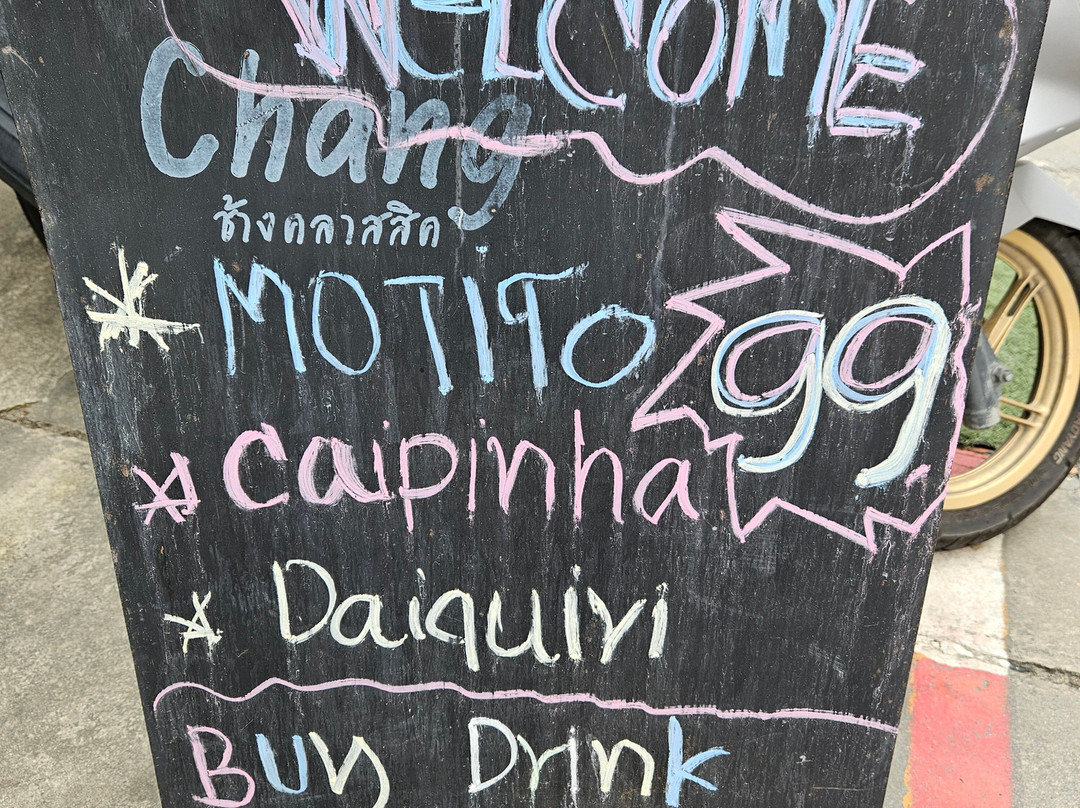 WELCOME
Chang
ช้างคลาสสิค
* MOTITO
99
* Caipinha
* Daiquiri
Buy Drink